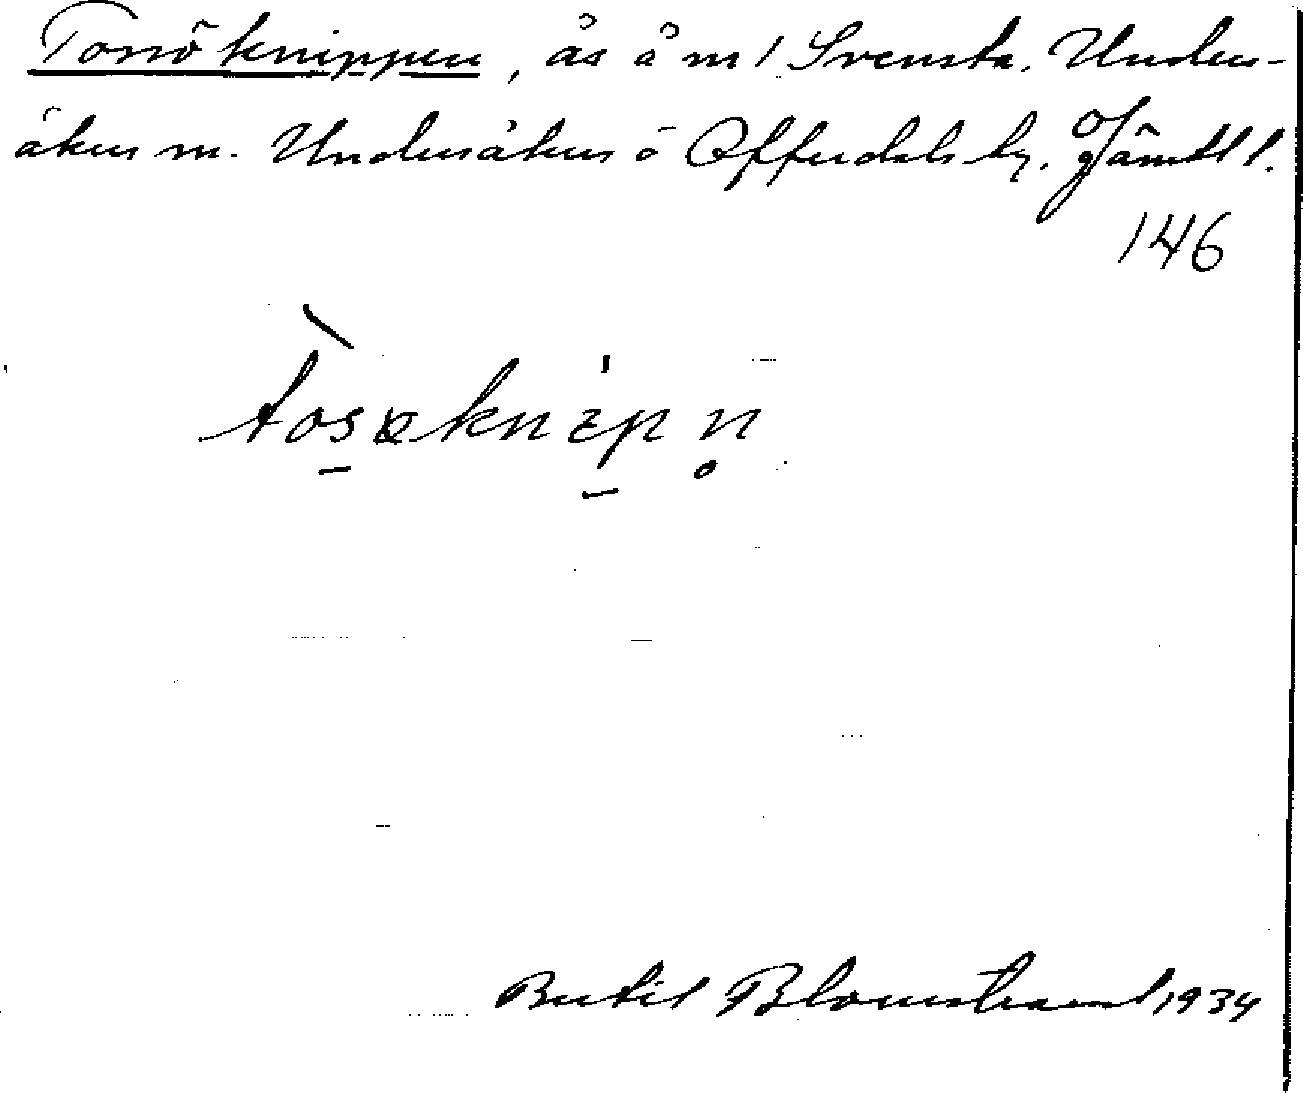 Torröknippen, ås å m/ Svensta. Unders-
åkers m. Undersåkers o Offerdals tg. Jämtl l.
146
tosøknipn
Bertil Blomstrand 1934